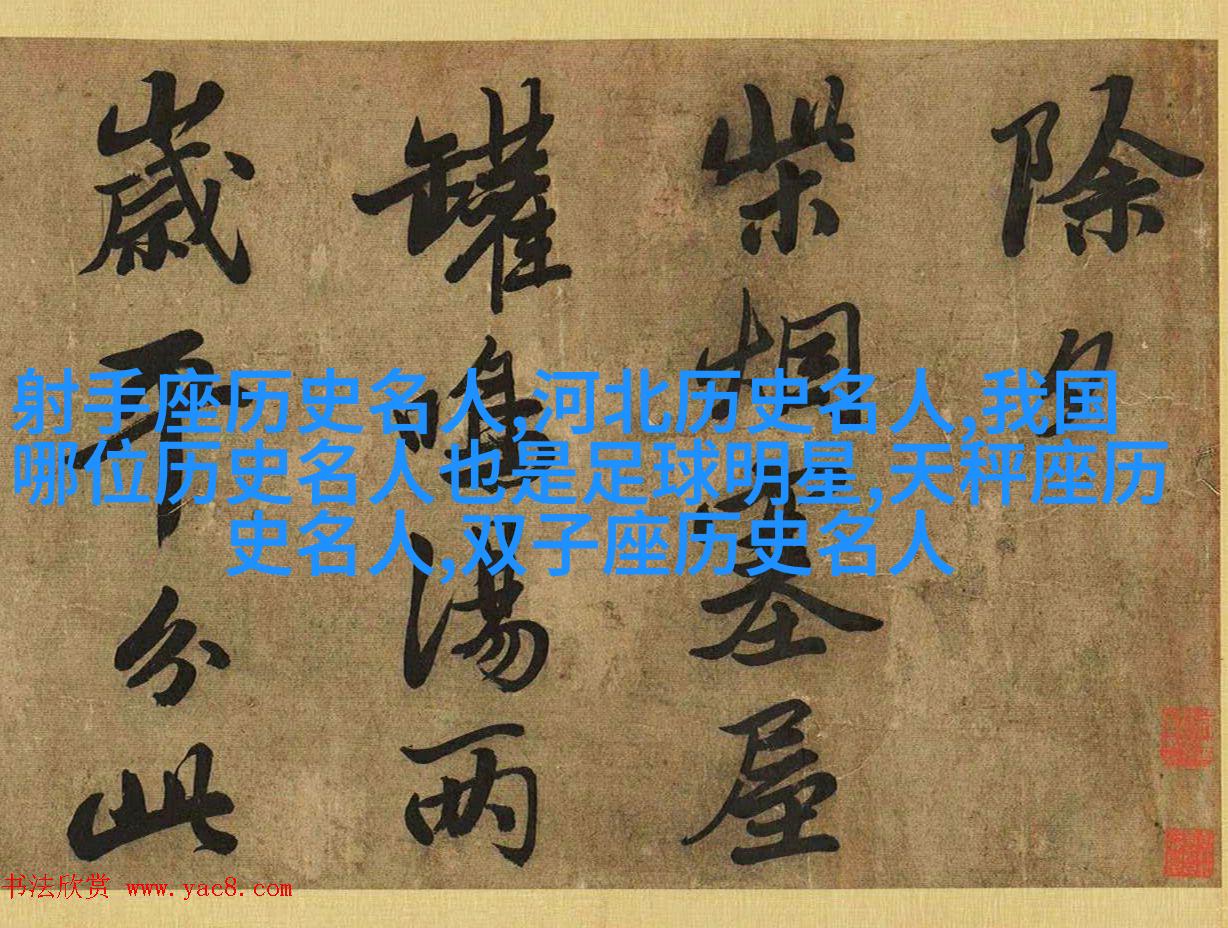 除夕
柴烟塞屋
罐鳴湯两
歲平分此
射手座历史名人,河北历史名人,我国
哪位历史名人也是足球明星,天秤座历
史名人,双子座历史名人
书法欣赏 www.yac8.com